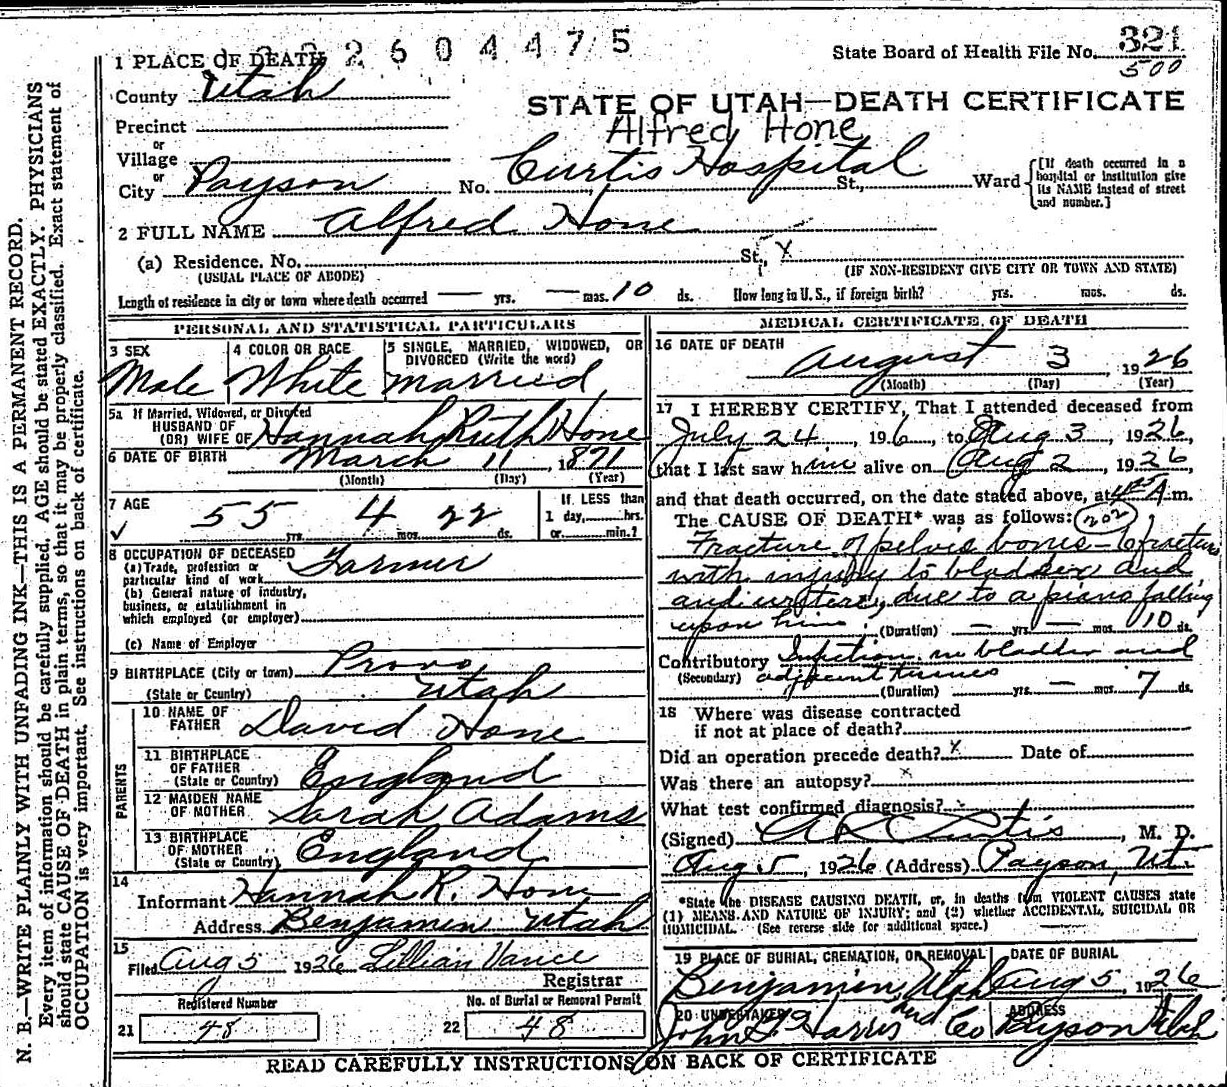 2 6 0 4 4 7 5
State Board of Health File No. 321
500
1 PLACE OF DEATH
County Utah
STATE OF UTAH—DEATH CERTIFICATE
Alfred Hone
Precinct
or
Village
or
City Payson No. Curtis Hospital St., Ward
[If death occurred in a hospital or institution give its NAME instead of street and number.]
2 FULL NAME Alfred Hone
(a) Residence. No. St., X
(USUAL PLACE OF ABODE) (IF NON-RESIDENT GIVE CITY OR TOWN AND STATE)
Length of residence in city or town where death occurred — yrs. — mos. 10 ds. How long in U. S., if foreign birth? yrs. mos. ds.
PERSONAL AND STATISTICAL PARTICULARS
3 SEX
Male
4 COLOR OR RACE
White
5 SINGLE, MARRIED, WIDOWED, OR DIVORCED (Write the word)
Married
5a If Married, Widowed, or Divorced
HUSBAND OF
(OR) WIFE OF Hannah Ruth Hone
6 DATE OF BIRTH March 11, 1871
(Month) (Day) (Year)
7 AGE
✓ 55 yrs. 4 mos. 22 ds.
If LESS than
1 day, hrs.
or min.?
8 OCCUPATION OF DECEASED
(a) Trade, profession or
particular kind of work Farmer
(b) General nature of industry,
business, or establishment in
which employed (or employer)
(c) Name of Employer
9 BIRTHPLACE (City or town) Provo,
(State or Country) Utah
PARENTS
10 NAME OF
FATHER David Hone
11 BIRTHPLACE
OF FATHER
(State or Country) England
12 MAIDEN NAME
OF MOTHER Sarah Adams
13 BIRTHPLACE
OF MOTHER
(State or Country) England
14
Informant Hannah R. Hone
Address Benjamin Utah
15
Filed Aug 5 1926 Lillian Vance
Registrar
Registered Number
21 48
No. of Burial or Removal Permit
22 48
MEDICAL CERTIFICATE OF DEATH
16 DATE OF DEATH
August 3, 1926
(Month) (Day) (Year)
17 I HEREBY CERTIFY, That I attended deceased from
July 24, 196, to Aug 3, 1926,
that I last saw him alive on Aug 2, 1926,
and that death occurred, on the date stated above, at A m.
The CAUSE OF DEATH* was as follows: 202
Fracture of pelvis bones
with injury to bladder and
and ureters, due to a piano falling
upon him. (Duration) — yrs. — mos. 10 ds.
Contributory Infection in bladder and
(Secondary) adjacent tissues
(Duration) yrs. — mos. 7 ds.
18 Where was disease contracted
if not at place of death?
Did an operation precede death? X Date of
Was there an autopsy? X
What test confirmed diagnosis?
(Signed) A L Curtis, M. D.
Aug 5, 1926 (Address) Payson, Ut.
*State the DISEASE CAUSING DEATH, or, in deaths from VIOLENT CAUSES state
(1) MEANS AND NATURE OF INJURY; and (2) whether ACCIDENTAL, SUICIDAL OR
HOMICIDAL. (See reverse side for additional space.)
19 PLACE OF BURIAL, CREMATION, OR REMOVAL
Benjamin, Utah
DATE OF BURIAL
Aug 5, 1926
20 UNDERTAKER
John Harris and Co
ADDRESS
Payson Utah
READ CAREFULLY INSTRUCTIONS ON BACK OF CERTIFICATE
N. B.—WRITE PLAINLY WITH UNFADING INK—THIS IS A PERMANENT RECORD.
Every item of information should be carefully supplied. AGE should be stated EXACTLY. PHYSICIANS
should state CAUSE OF DEATH in plain terms, so that it may be properly classified. Exact statement of
OCCUPATION is very important. See instructions on back of certificate.